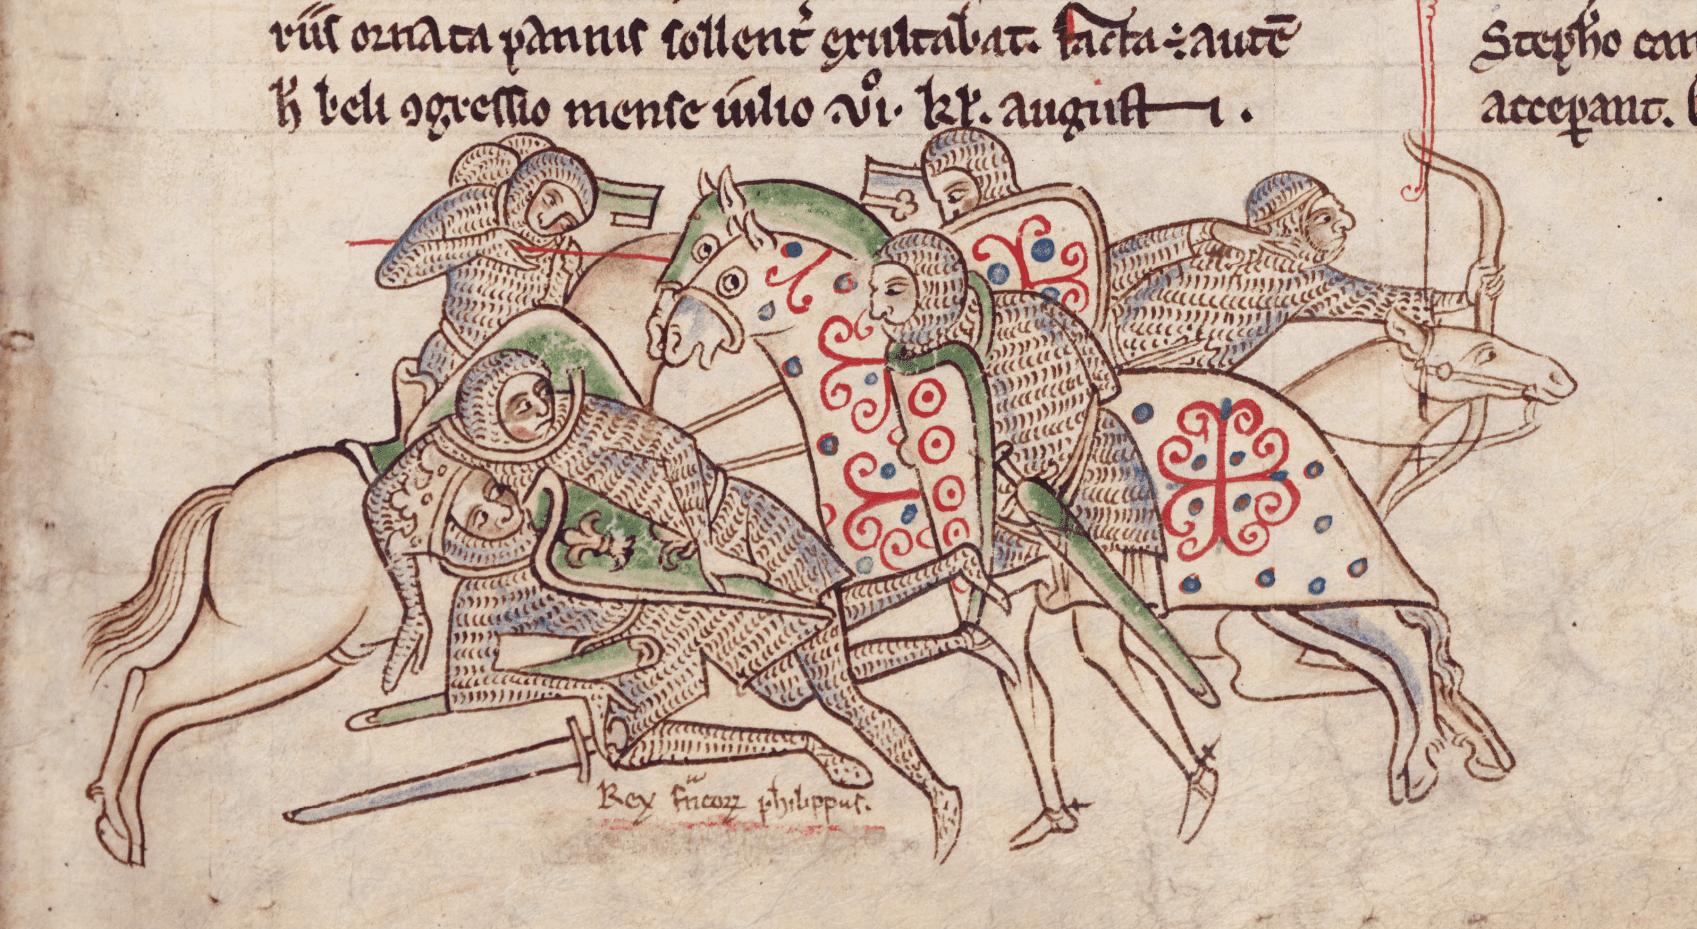 riis ornata pannis sollenť exultabat. Facta ÷ autē
ħ beli ꝯgressio mense iulio .vi.º kł. augusti.
Stepħo can
acceperant.
Rex francorꝝ philippus.